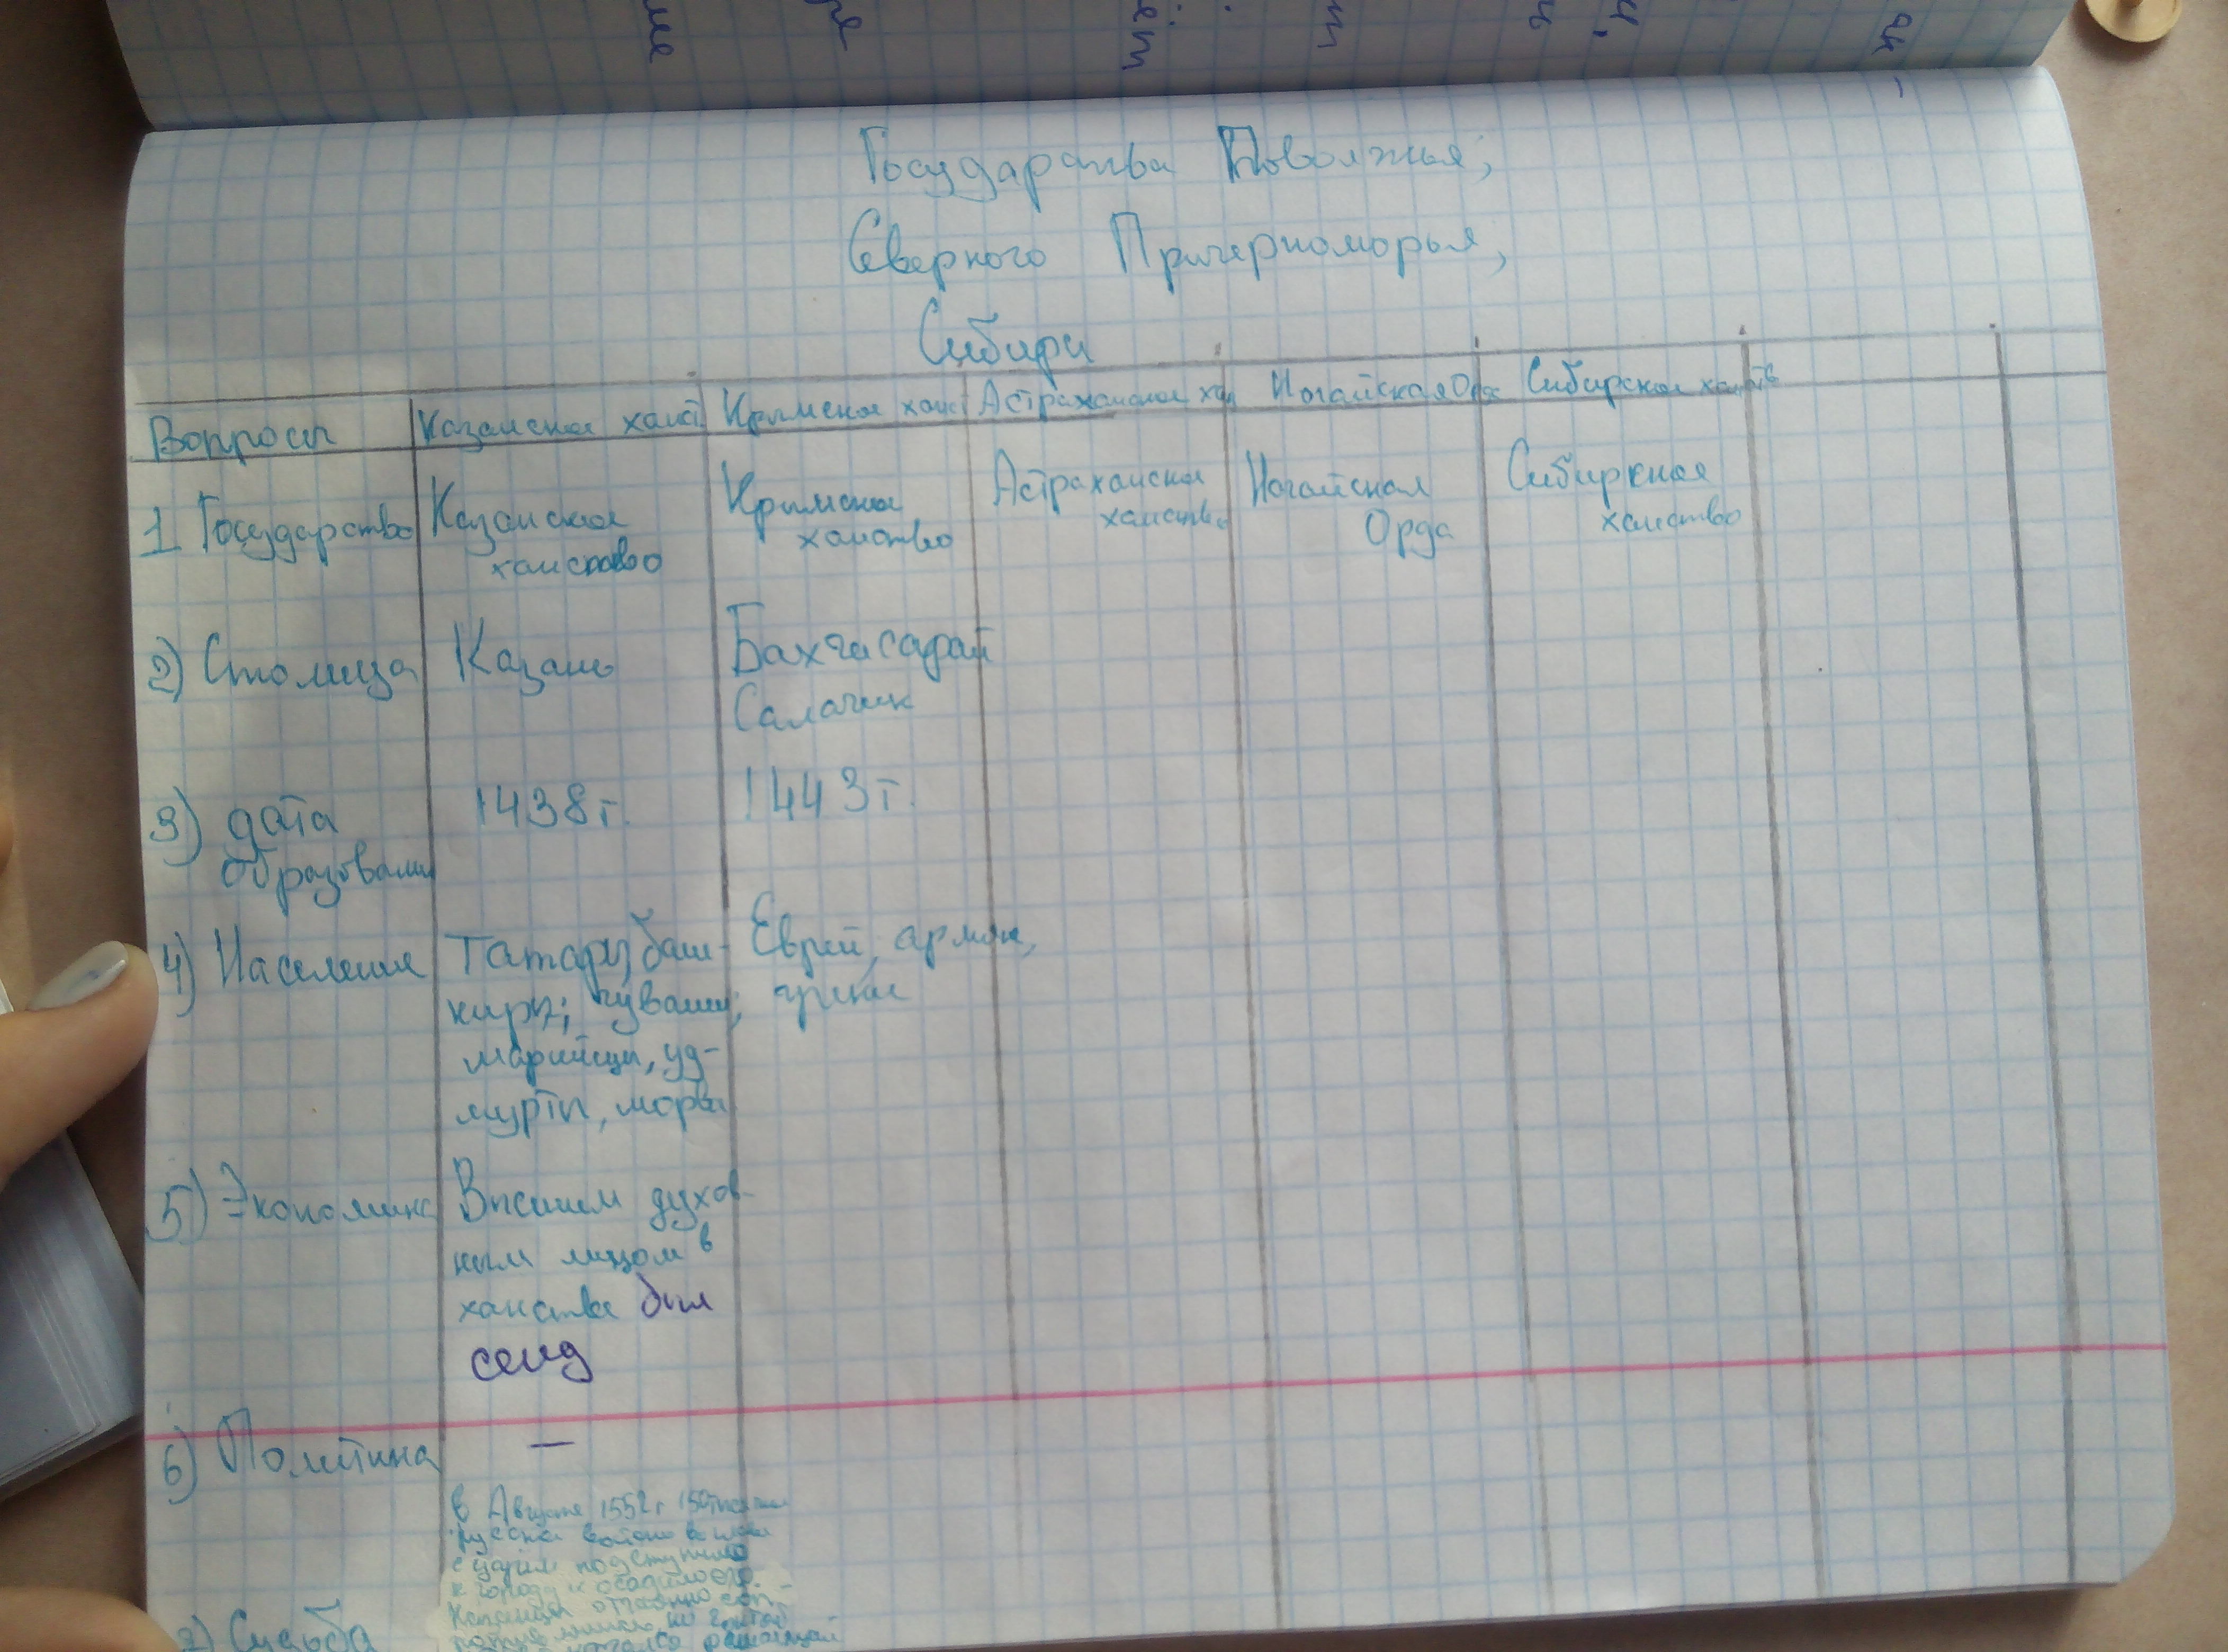 Государства Поволжья,
Северного Причерноморья,
Сибири
Вопросы Казанское ханст Крымское ханс Астраханское хан Ногайская Орда Сибирское ханств
1 Государство Казанское ханство Крымское ханство Астраханское ханство Ногайская Орда Сибирское ханство
2) Столица Казань Бахчисарай
Салачик
3) дата 1438г. 1443г.
образования
4) Население Татары, баш- Еврей, армян,
киры; чуваши; греки
марийцы, уд-
мурты, мордва
5) Экономика Высшем духов-
ным лицом в
ханстве был
сеид
6) Политика —
в Августе 1552г 150тысячное
русское войско во главе
с царём подступило
к городу и осадило его.
Казанцы отчаянно соп-
7) Судьба